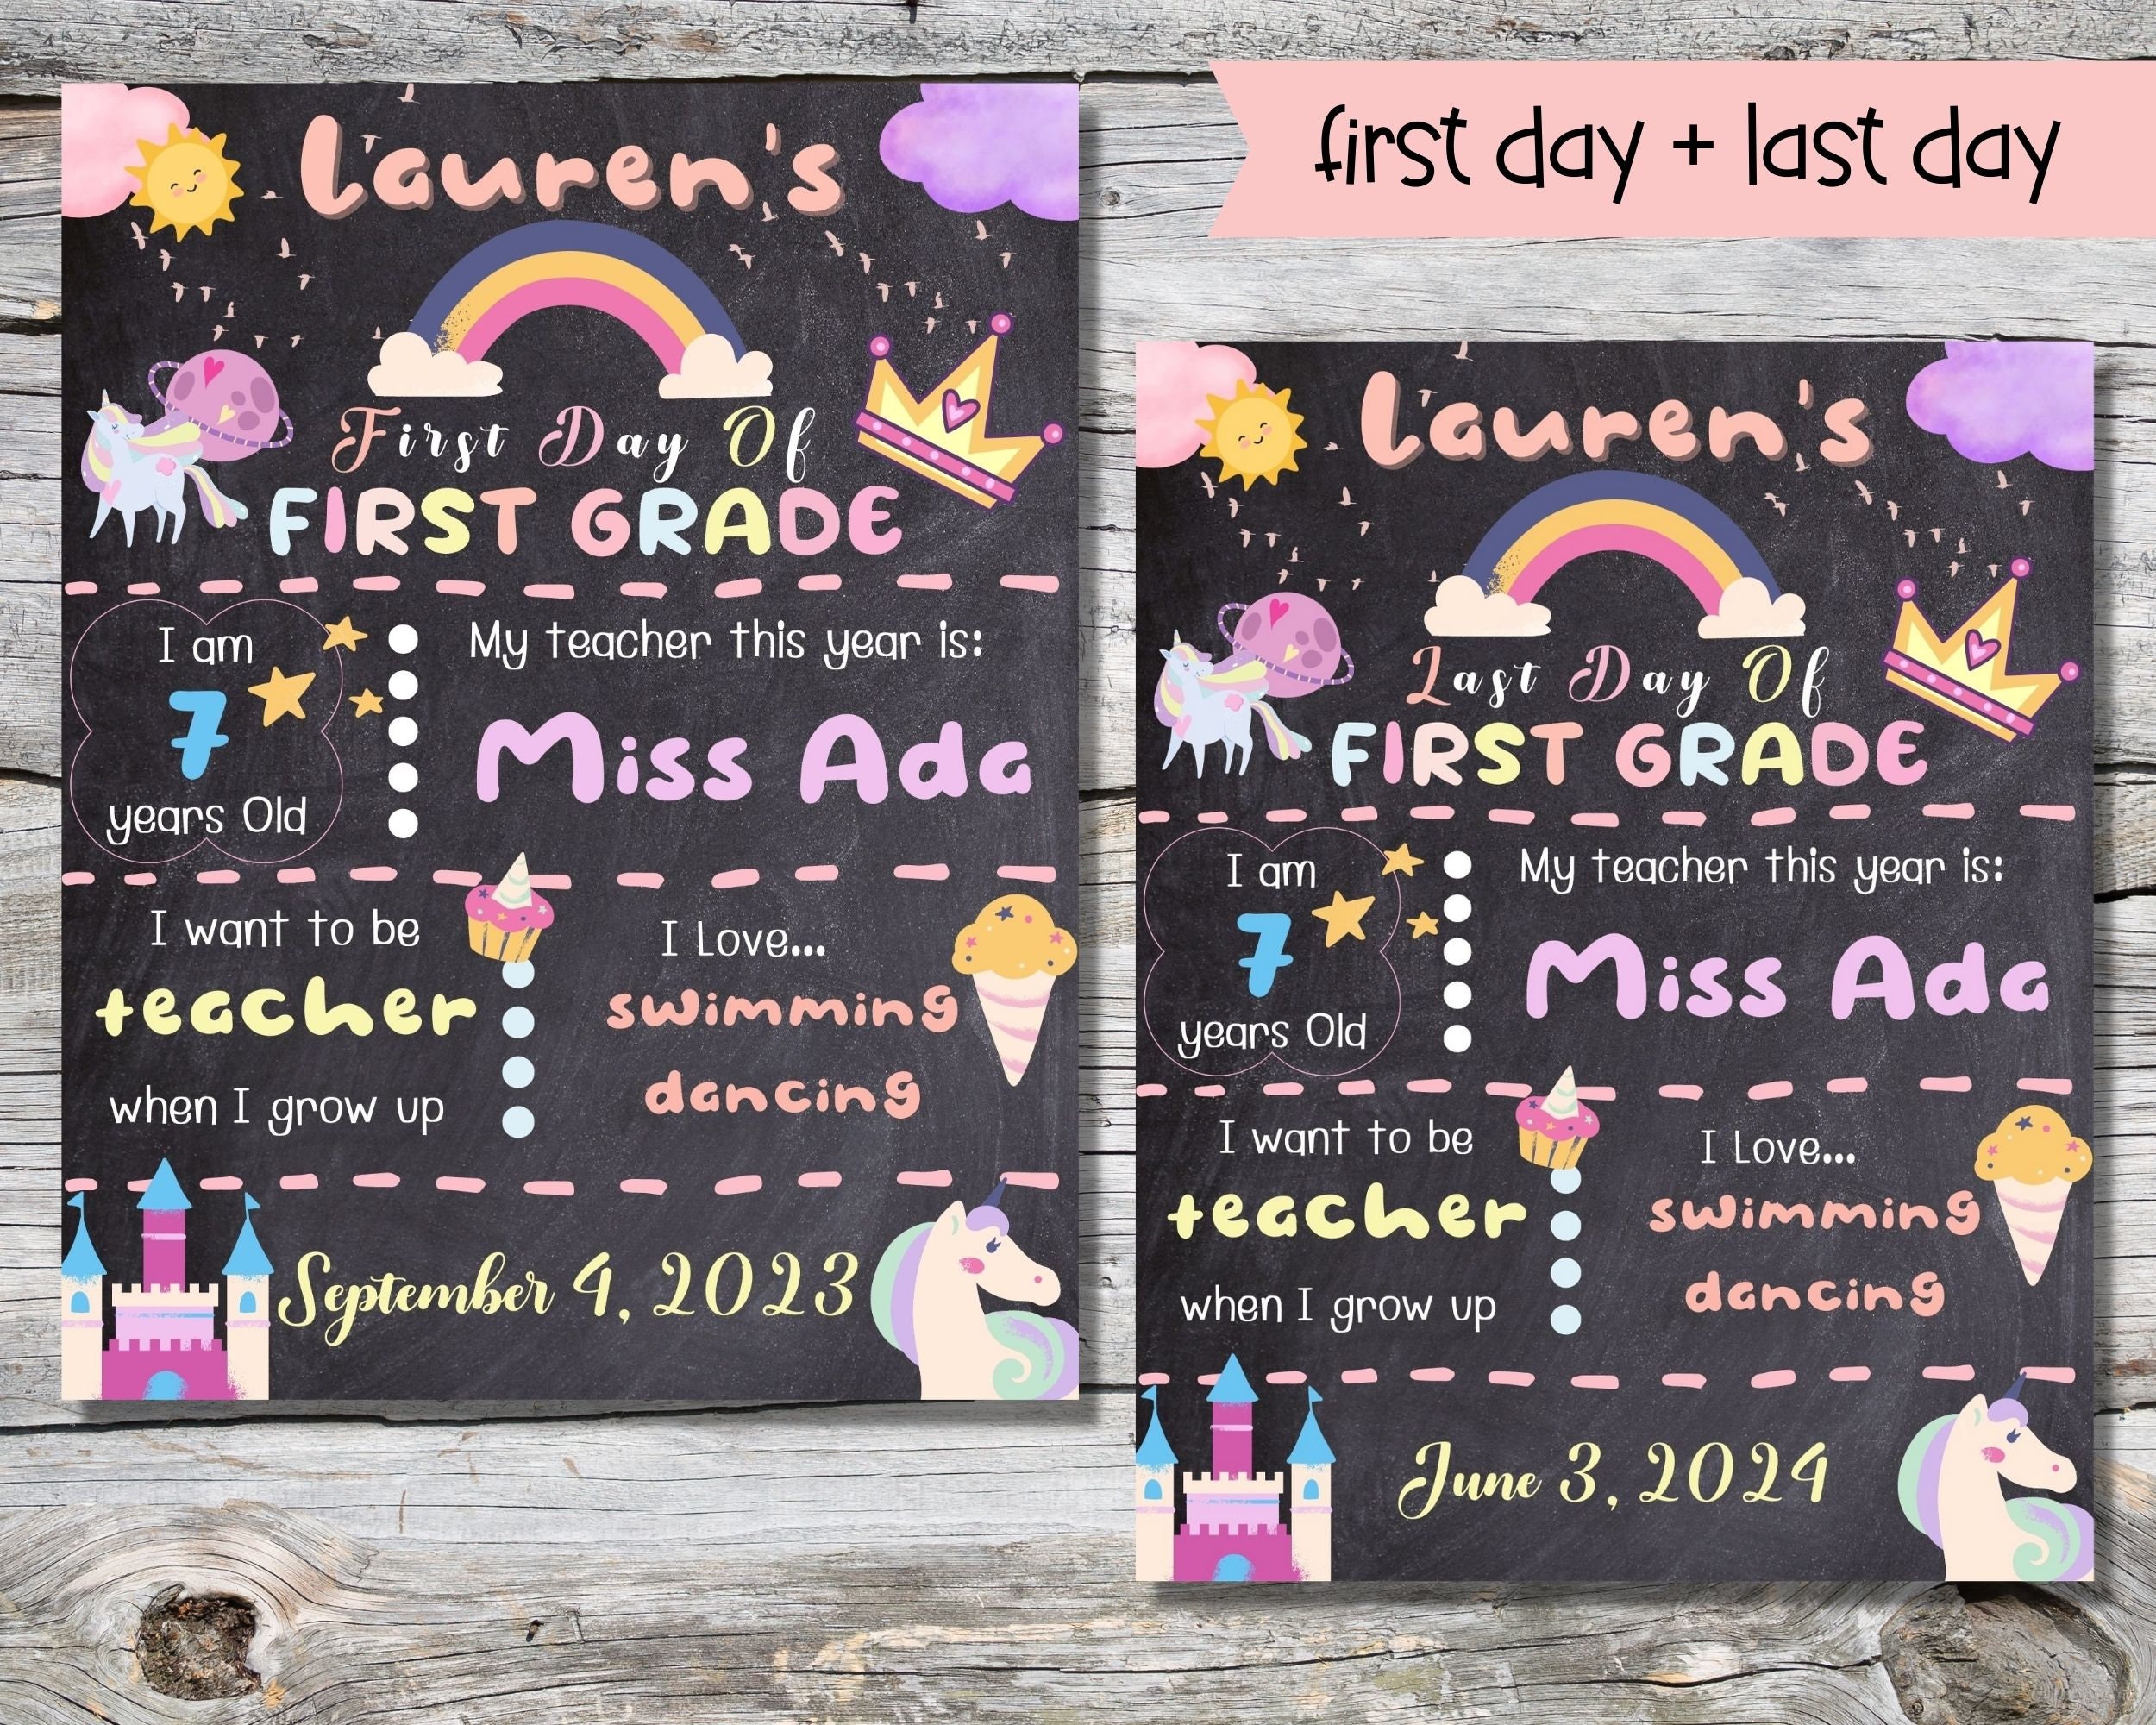 first day + last day
Lauren's
First Day Of
FIRST GRADE
I am
7
years Old
My teacher this year is:
Miss Ada
I want to be
teacher
when I grow up
I Love...
swimming
dancing
September 4, 2023
Lauren's
Last Day Of
FIRST GRADE
I am
7
years Old
My teacher this year is:
Miss Ada
I want to be
teacher
when I grow up
I Love...
swimming
dancing
June 3, 2024